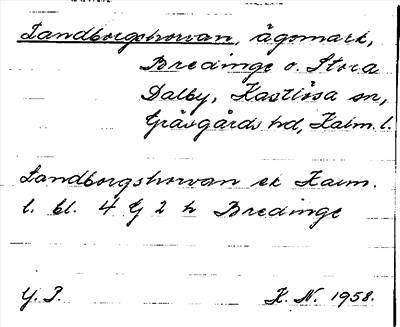 Sandborgshorvan, ägomark,
Bredinge o. Stora
Dalby, Kastlösa sn,
Gräsgårds hd, Kalm. l.
Sandborgshorvan ek Kalm.
l. bl. 4 G 2 h Bredinge
Y. P. K. N. 1958.